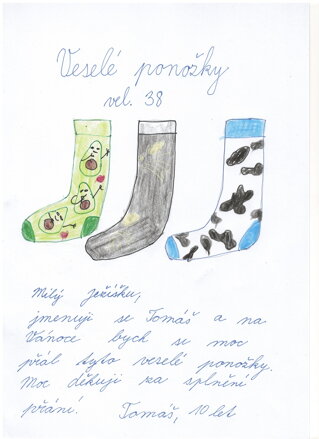 Veselé ponožky
vel. 38
Milý Ježíšku,
jmenuji se Tomáš a na
Vánoce bych si moc
přál tyto veselé ponožky.
Moc děkuji za splnění
přání. Tomáš, 10 let